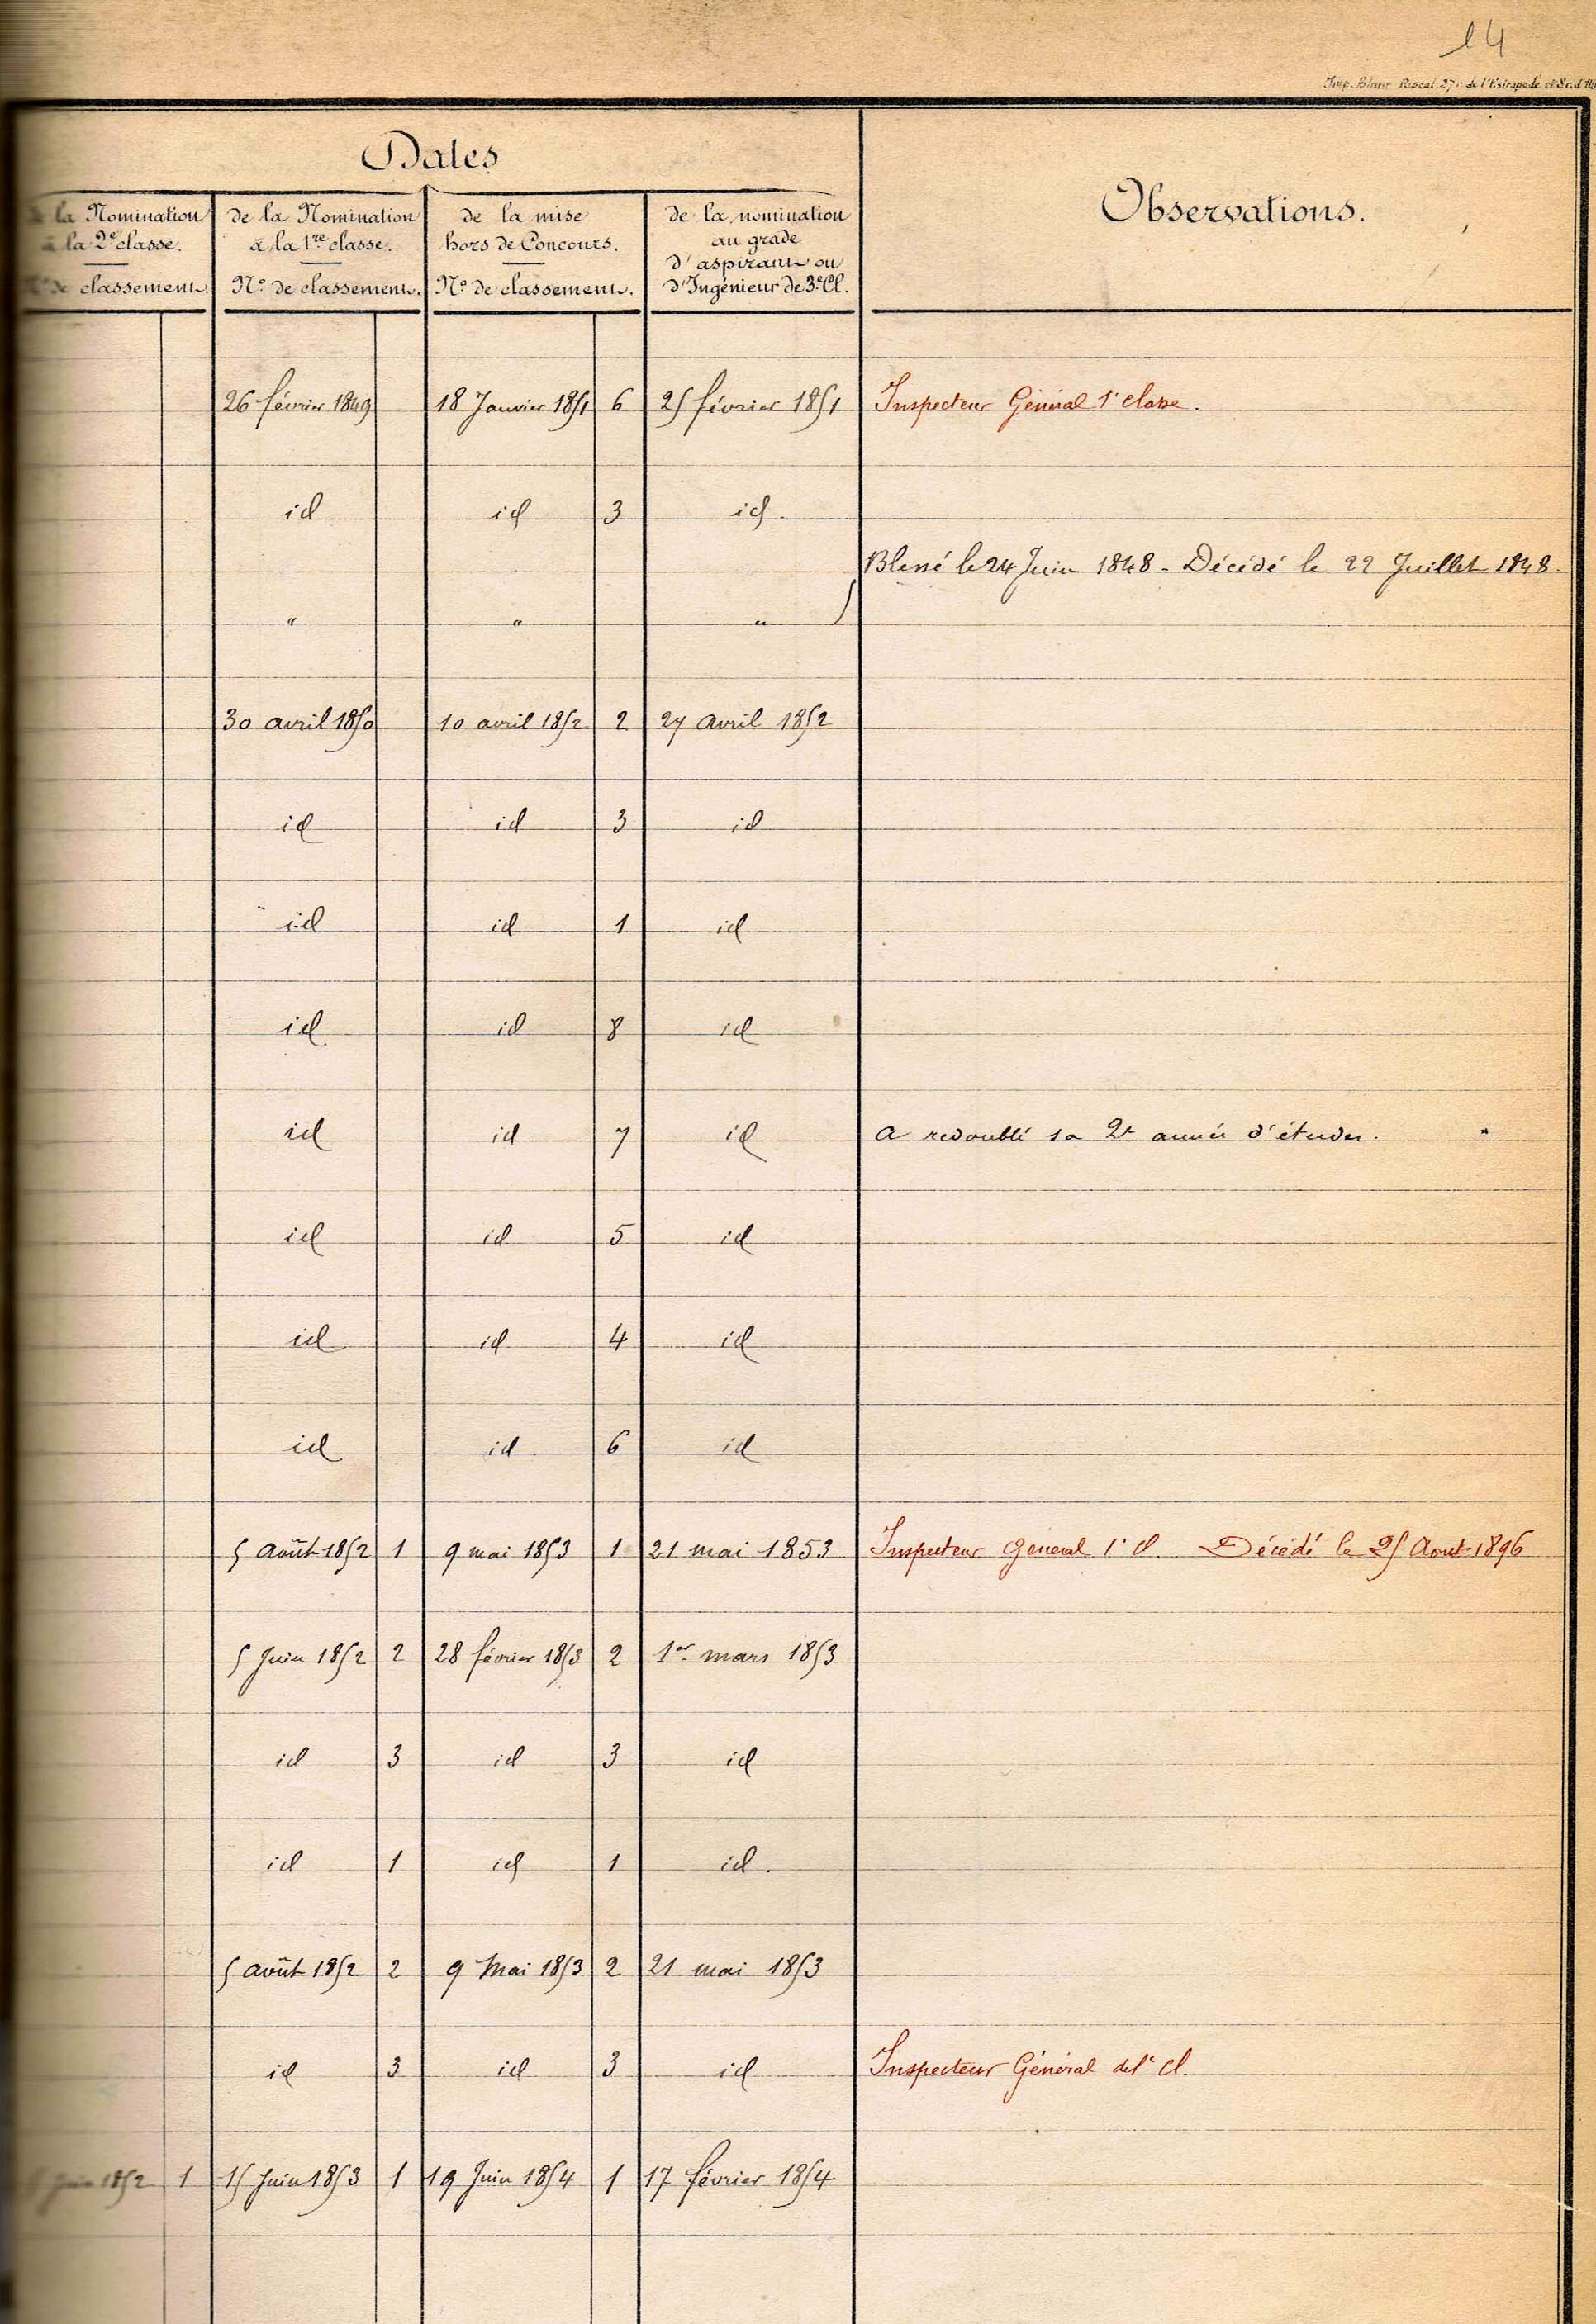 14
Dates
Observations.
la Nomination
à la 2e classe.
de classement.
de la Nomination
à la 1re classe.
No de classement.
de la mise
hors de Concours.
No de classement.
de la nomination
au grade
d'aspirant ou
d'Ingénieur de 3e Cl.
26 février 1849 18 Janvier 1851 6 25 février 1851 Inspecteur Général 1e classe.
id id 3 id.
Blessé le 24 Juin 1848 - Décédé le 22 Juillet 1848.
" " "
30 avril 1850 10 avril 1852 2 27 avril 1852
id id 3 id
id id 1 id
id id 8 id
id id 7 id a redoublé sa 2e année d'études.
id id 5 id
id id 4 id
id id 6 id
5 août 1852 1 9 mai 1853 1 21 mai 1853 Inspecteur Général 1e cl. Décédé le 25 Aout 1896
5 Juin 1852 2 28 février 1853 2 1er mars 1853
id 3 id 3 id
id 1 id 1 id.
5 août 1852 2 9 Mai 1853 2 21 mai 1853
id 3 id 3 id Inspecteur Général de 1e cl.
Juin 1852 1 15 Juin 1853 1 19 Juin 1854 1 17 février 1854